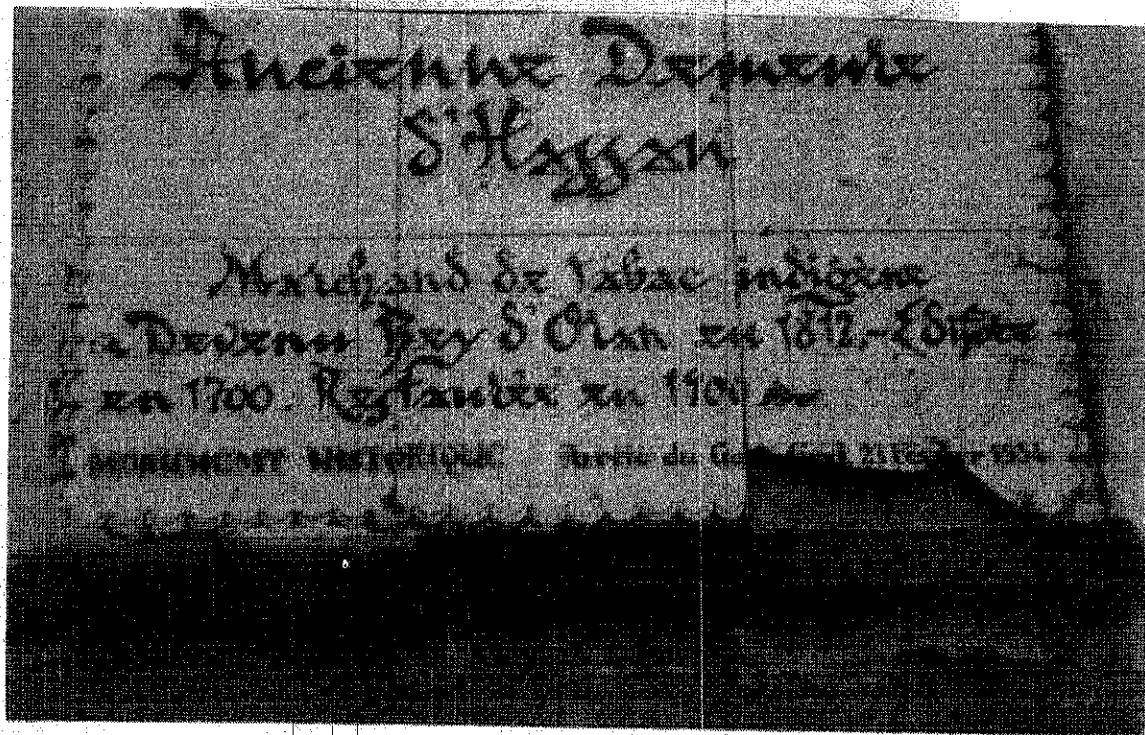 Ancienne Demeure
d'Hassan
Marchand de Tabac indigène
Devenu Bey d'Oran en 1812.-Edifiée
en 1700. Restaurée en 1900
MONUMENT HISTORIQUE. Arrêté du